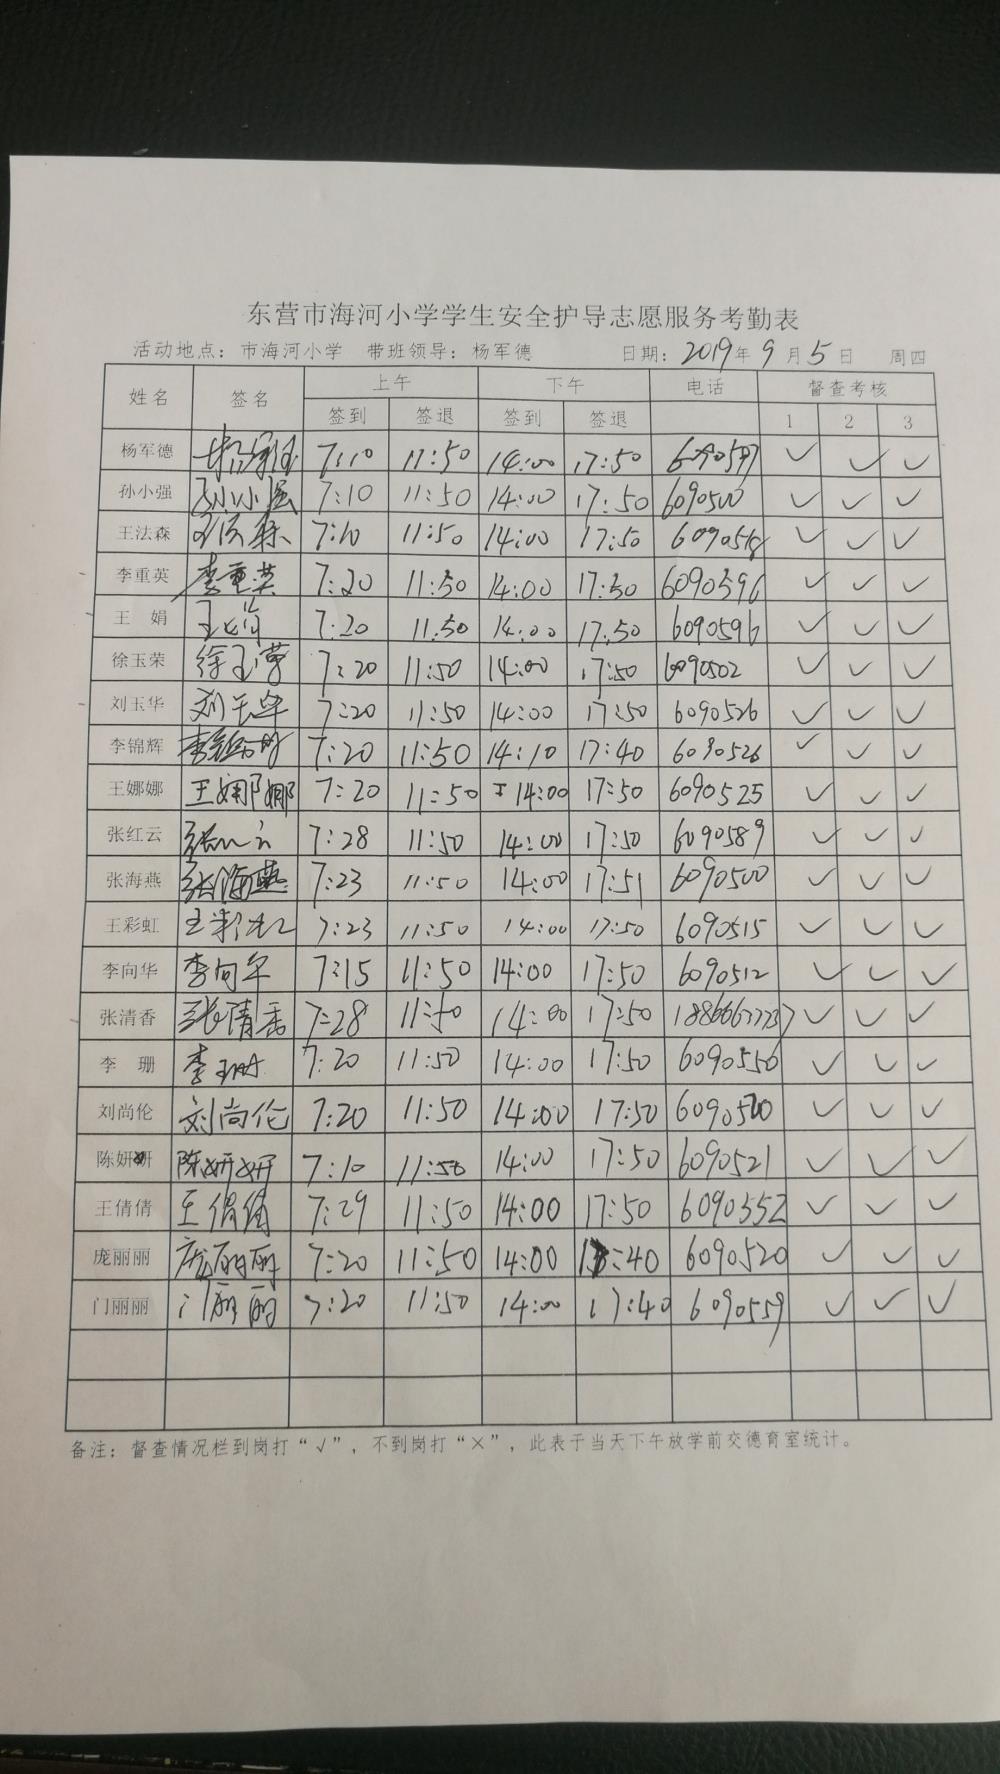 东营市海河小学学生安全护导志愿服务考勤表
活动地点：市海河小学 带班领导：杨军德 日期：2019年9月5日 周四
姓名 签名 上午 下午 电话 督查考核
签到 签退 签到 签退 1 2 3
杨军德 杨军德 7:10 11:50 14:00 17:50 6090597 ✓ ✓ ✓
孙小强 孙小强 7:10 11:50 14:00 17:50 6090500 ✓ ✓ ✓
王法森 王法森 7:10 11:50 14:00 17:50 6090518 ✓ ✓ ✓
李重英 李重英 7:20 11:50 14:00 17:50 6090596 ✓ ✓ ✓
王 娟 王娟 7:20 11:50 14:00 17:50 6090596 ✓ ✓ ✓
徐玉荣 徐玉荣 7:20 11:50 14:00 17:50 6090502 ✓ ✓ ✓
刘玉华 刘玉华 7:20 11:50 14:00 17:50 6090526 ✓ ✓ ✓
李锦辉 李锦辉 7:20 11:50 14:10 17:40 6090526 ✓ ✓ ✓
王娜娜 王娜娜 7:20 11:50 14:00 17:50 6090525 ✓ ✓ ✓
张红云 张红云 7:28 11:50 14:00 17:50 6090589 ✓ ✓ ✓
张海燕 张海燕 7:23 11:50 14:00 17:51 6090500 ✓ ✓ ✓
王彩虹 王彩虹 7:23 11:50 14:00 17:50 6090515 ✓ ✓ ✓
李向华 李向华 7:15 11:50 14:00 17:50 6090512 ✓ ✓ ✓
张清香 张清香 7:28 11:50 14:00 17:50 ✓ ✓ ✓
李 珊 李珊 7:20 11:50 14:00 17:50 6090556 ✓ ✓ ✓
刘尚伦 刘尚伦 7:20 11:50 14:00 17:50 ✓ ✓ ✓
陈妍妍 陈妍妍 7:10 11:50 14:00 17:50 6090521 ✓ ✓ ✓
王倩倩 王倩倩 7:29 11:50 14:00 17:50 6090552 ✓ ✓ ✓
庞丽丽 庞丽丽 7:20 11:50 14:00 17:40 6090520 ✓ ✓ ✓
门丽丽 门丽丽 7:20 11:50 14:00 17:40 6090559 ✓ ✓ ✓
备注：督查情况栏到岗打“√”，不到岗打“×”，此表于当天下午放学前交德育室统计。